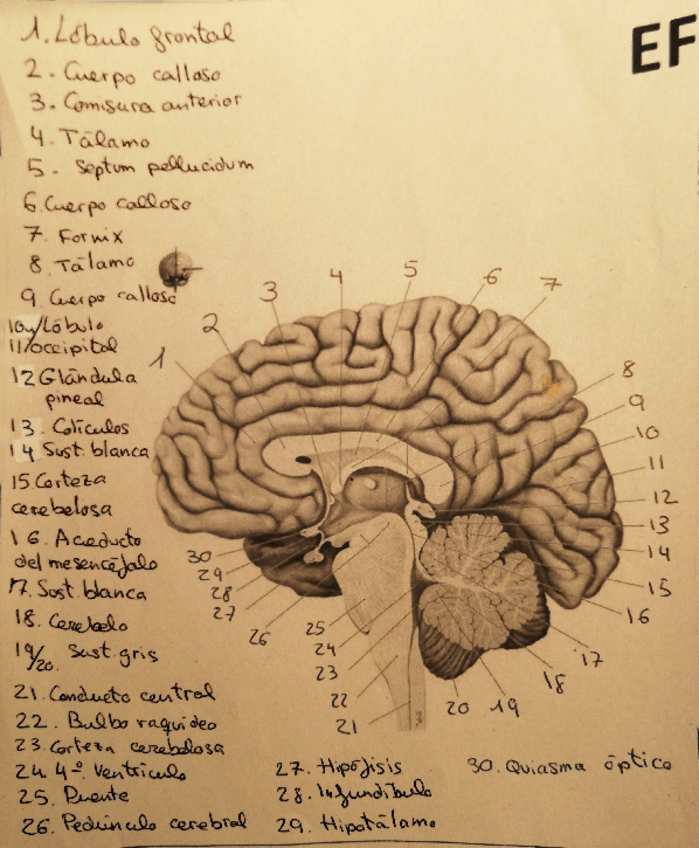 EF
1. Lóbulo frontal
2. Cuerpo calloso
3. Comisura anterior
4. Tálamo
5. Septum pellucidum
6. Cuerpo calloso
7. Fornix
8. Tálamo
9. Cuerpo calloso
10 y Lóbulo
11 occipital
12 Glándula
pineal
13. Colículos
14 Sust. blanca
15 Corteza
cerebelosa
16. Acueducto
del mesencéfalo
17. Sust. blanca
18. Cerebelo
19/20. Sust. gris
21. Conducto central
22. Bulbo raquídeo
23. Corteza cerebelosa
24. 4º Ventrículo
25. Puente
26. Pedúnculo cerebral
27. Hipófisis
28. Infundíbulo
29. Hipotálamo
30. Quiasma óptico
1
2
3
4
5
6
7
8
9
10
11
12
13
14
15
16
17
18
19
20
21
22
23
24
25
26
27
28
29
30